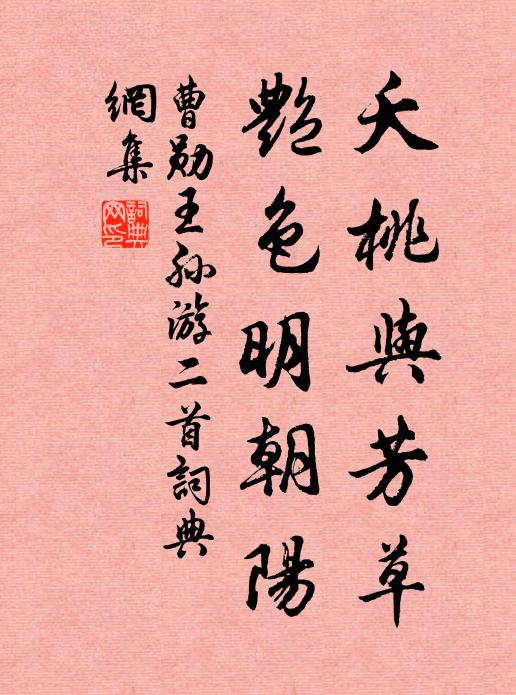 夭桃與芳草
艶色明朝陽
曹勛王孫游二首詞典
網集
詞典
网印